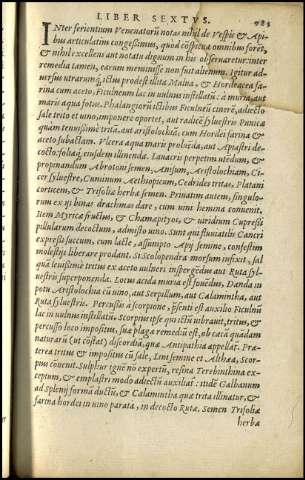 LIBER SEXTVS.
INter ferientium Venenatorũ notas nihil de Vespis & Api
bus articulatim congeßimus, quòd cõspicua omnibus foret,
& nihil excellens aut notatu dignum in his obseruaretur: inter
remedia tamen, earum meminisse non fuit alienum. Igitur ad-
uersus utrarumq́; ictus prodest illita Malua, & Hordeacea fa
rina cum aceto, Ficulneum lac in uulnus instillatũ: à muria aut
mari aqua fotus. Phalangiorũ ictibus Ficulneũ cinerẽ, adiecto
sale trito et uino, imponere oportet, aut radicẽ syluestris Punicæ
quàm tenuißimè tritã, aut aristolochiã, cum Hordei farina &
aceto subactam. Vlcera aqua maris proluẽda, aut Apiastri de-
cocto: foliaq́; eiusdem illinenda. Lauacris perpetim utẽdum, &
propinandum Abrotoni semen, Anisum, Aristolochiam, Ci-
cer syluestre, Cuminum Aethiopicum, Cedrides tritas, Platani
corticem, & Trifolij herbæ semen. Priuatim autem, singulo-
rum ex ijs binas drachmas dare, cum uini hemina conuenit.
Item Myricæ fructus, & Chamæpityos, & uiridium Cupreßi
pilularum decoctum, admisto uino. Sunt qui fluuiatilis Cancri
expreßi succum, cum lacte, assumpto Apij semine, confestim
molestijs liberare prodant. Si Scolopendra morsum infixit, sal
quàm leuißimè tritus ex aceto uulneri inspergendus aut Ruta syl-
uestris superponenda. Locus acida muria est fouẽdus, Danda in
potu Aristolochia cũ uino, aut Serpillum, aut Calamintha, aut
Ruta syluestris. Percußis à scorpione, ipsenti est auxilio Ficulnũ
lac in uulnus instillatũ, Scorpius ipse qui ictũ uibrauit, tritus, et
percusso loco impositus, suæ plagæ remediũ est, ob cæcã quãdam
naturarũ (ut cõstat) discordiã, quæ Antipathia appellat̃. Præ-
terea tritus & impositus cũ sale, Lini semine et Althæa, Scor-
pius cõuenit. Sulphur ignẽ nõ expertũ, resina Terebinthina ex
ceptum, & emplastri modo adiectũ auxiliat̃: itidẽ Galbanum
ad splenij formã ductũ, & Calamintha quæ trita illinatur, &
farina hordei in uino parata, in decocto Rutæ. Semen Trifoliæ
herba